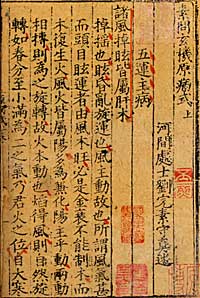 素問玄機原病式上
河間處士劉完素守真述
五運主病
諸風掉眩皆屬肝木
掉搖也眩昏亂旋運也風主動故也所謂風氣甚
而頭目眩運者由風木旺必是金衰不能制木而
木復生火風火皆屬陽多為兼化陽主乎動兩動
相搏則為之旋轉故火本動也焰得風則自然旋
轉如春分至小滿為二之氣乃君火之位自大寒